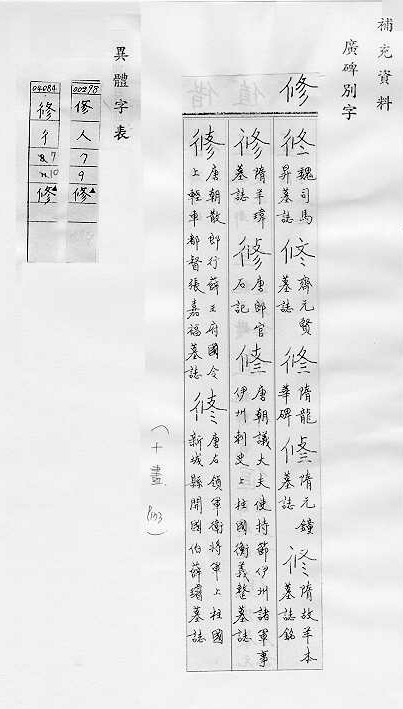 補充資料
廣碑別字
修
魏司馬昇墓誌
齊元賢墓誌
隋龍華碑
隋元鐘墓誌
隋故羊本墓誌銘
隋羊瑋墓誌
唐郎官石記
唐朝議大夫使持節伊州諸軍事伊州刺史上柱國衡義整墓誌
唐朝散郎行薛王府國令上輕車都督張嘉福墓誌
唐右領軍衛將軍上柱國新城縣開國伯薛璿墓誌
(十畫 P.103)
異體字表
00295
修
人
7
9
修
04084
修
彳
7
10
修